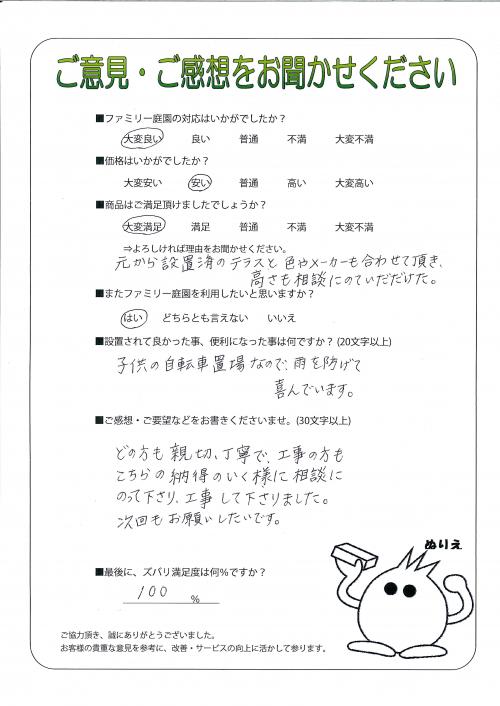 ご意見・ご感想をお聞かせください
■ファミリー庭園の対応はいかがでしたか？
大変良い 良い 普通 不満 大変不満
■価格はいかがでしたか？
大変安い 安い 普通 高い 大変高い
■商品はご満足頂けましたでしょうか？
大変満足 満足 普通 不満 大変不満
⇒よろしければ理由をお聞かせください。
元から設置済のテラスと色やメーカーも合わせて頂き、
高さも相談にのていただけた。
■またファミリー庭園を利用したいと思いますか？
はい どちらとも言えない いいえ
■設置されて良かった事、便利になった事は何ですか？(20文字以上)
子供の自転車置場なので、雨を防げて
喜んでいます。
■ご感想・ご要望などをお書きくださいませ。(30文字以上)
どの方も親切、丁寧で、工事の方も
こちらの納得のいく様に相談に
のって下さり、工事して下さりました。
次回もお願いしたいです。
ぬりえ
■最後に、ズバリ満足度は何％ですか？
100 ％
ご協力頂き、誠にありがとうございました。
お客様の貴重な意見を参考に、改善・サービスの向上に活かして参ります。